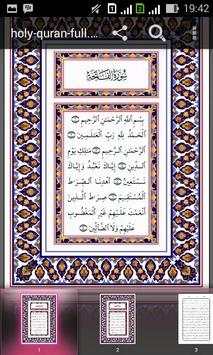 19:42
holy-quran-full....
سُورَةُ الْفَاتِحَةِ
بِسْمِ اللَّهِ الرَّحْمَٰنِ الرَّحِيمِ ۝
الْحَمْدُ لِلَّهِ رَبِّ الْعَالَمِينَ ۝
الرَّحْمَٰنِ الرَّحِيمِ ۝ مَالِكِ يَوْمِ
الدِّينِ ۝ إِيَّاكَ نَعْبُدُ وَإِيَّاكَ
نَسْتَعِينُ ۝ اهْدِنَا الصِّرَاطَ
الْمُسْتَقِيمَ ۝ صِرَاطَ الَّذِينَ
أَنْعَمْتَ عَلَيْهِمْ غَيْرِ الْمَغْضُوبِ
عَلَيْهِمْ وَلَا الضَّالِّينَ ۝
1
2
3